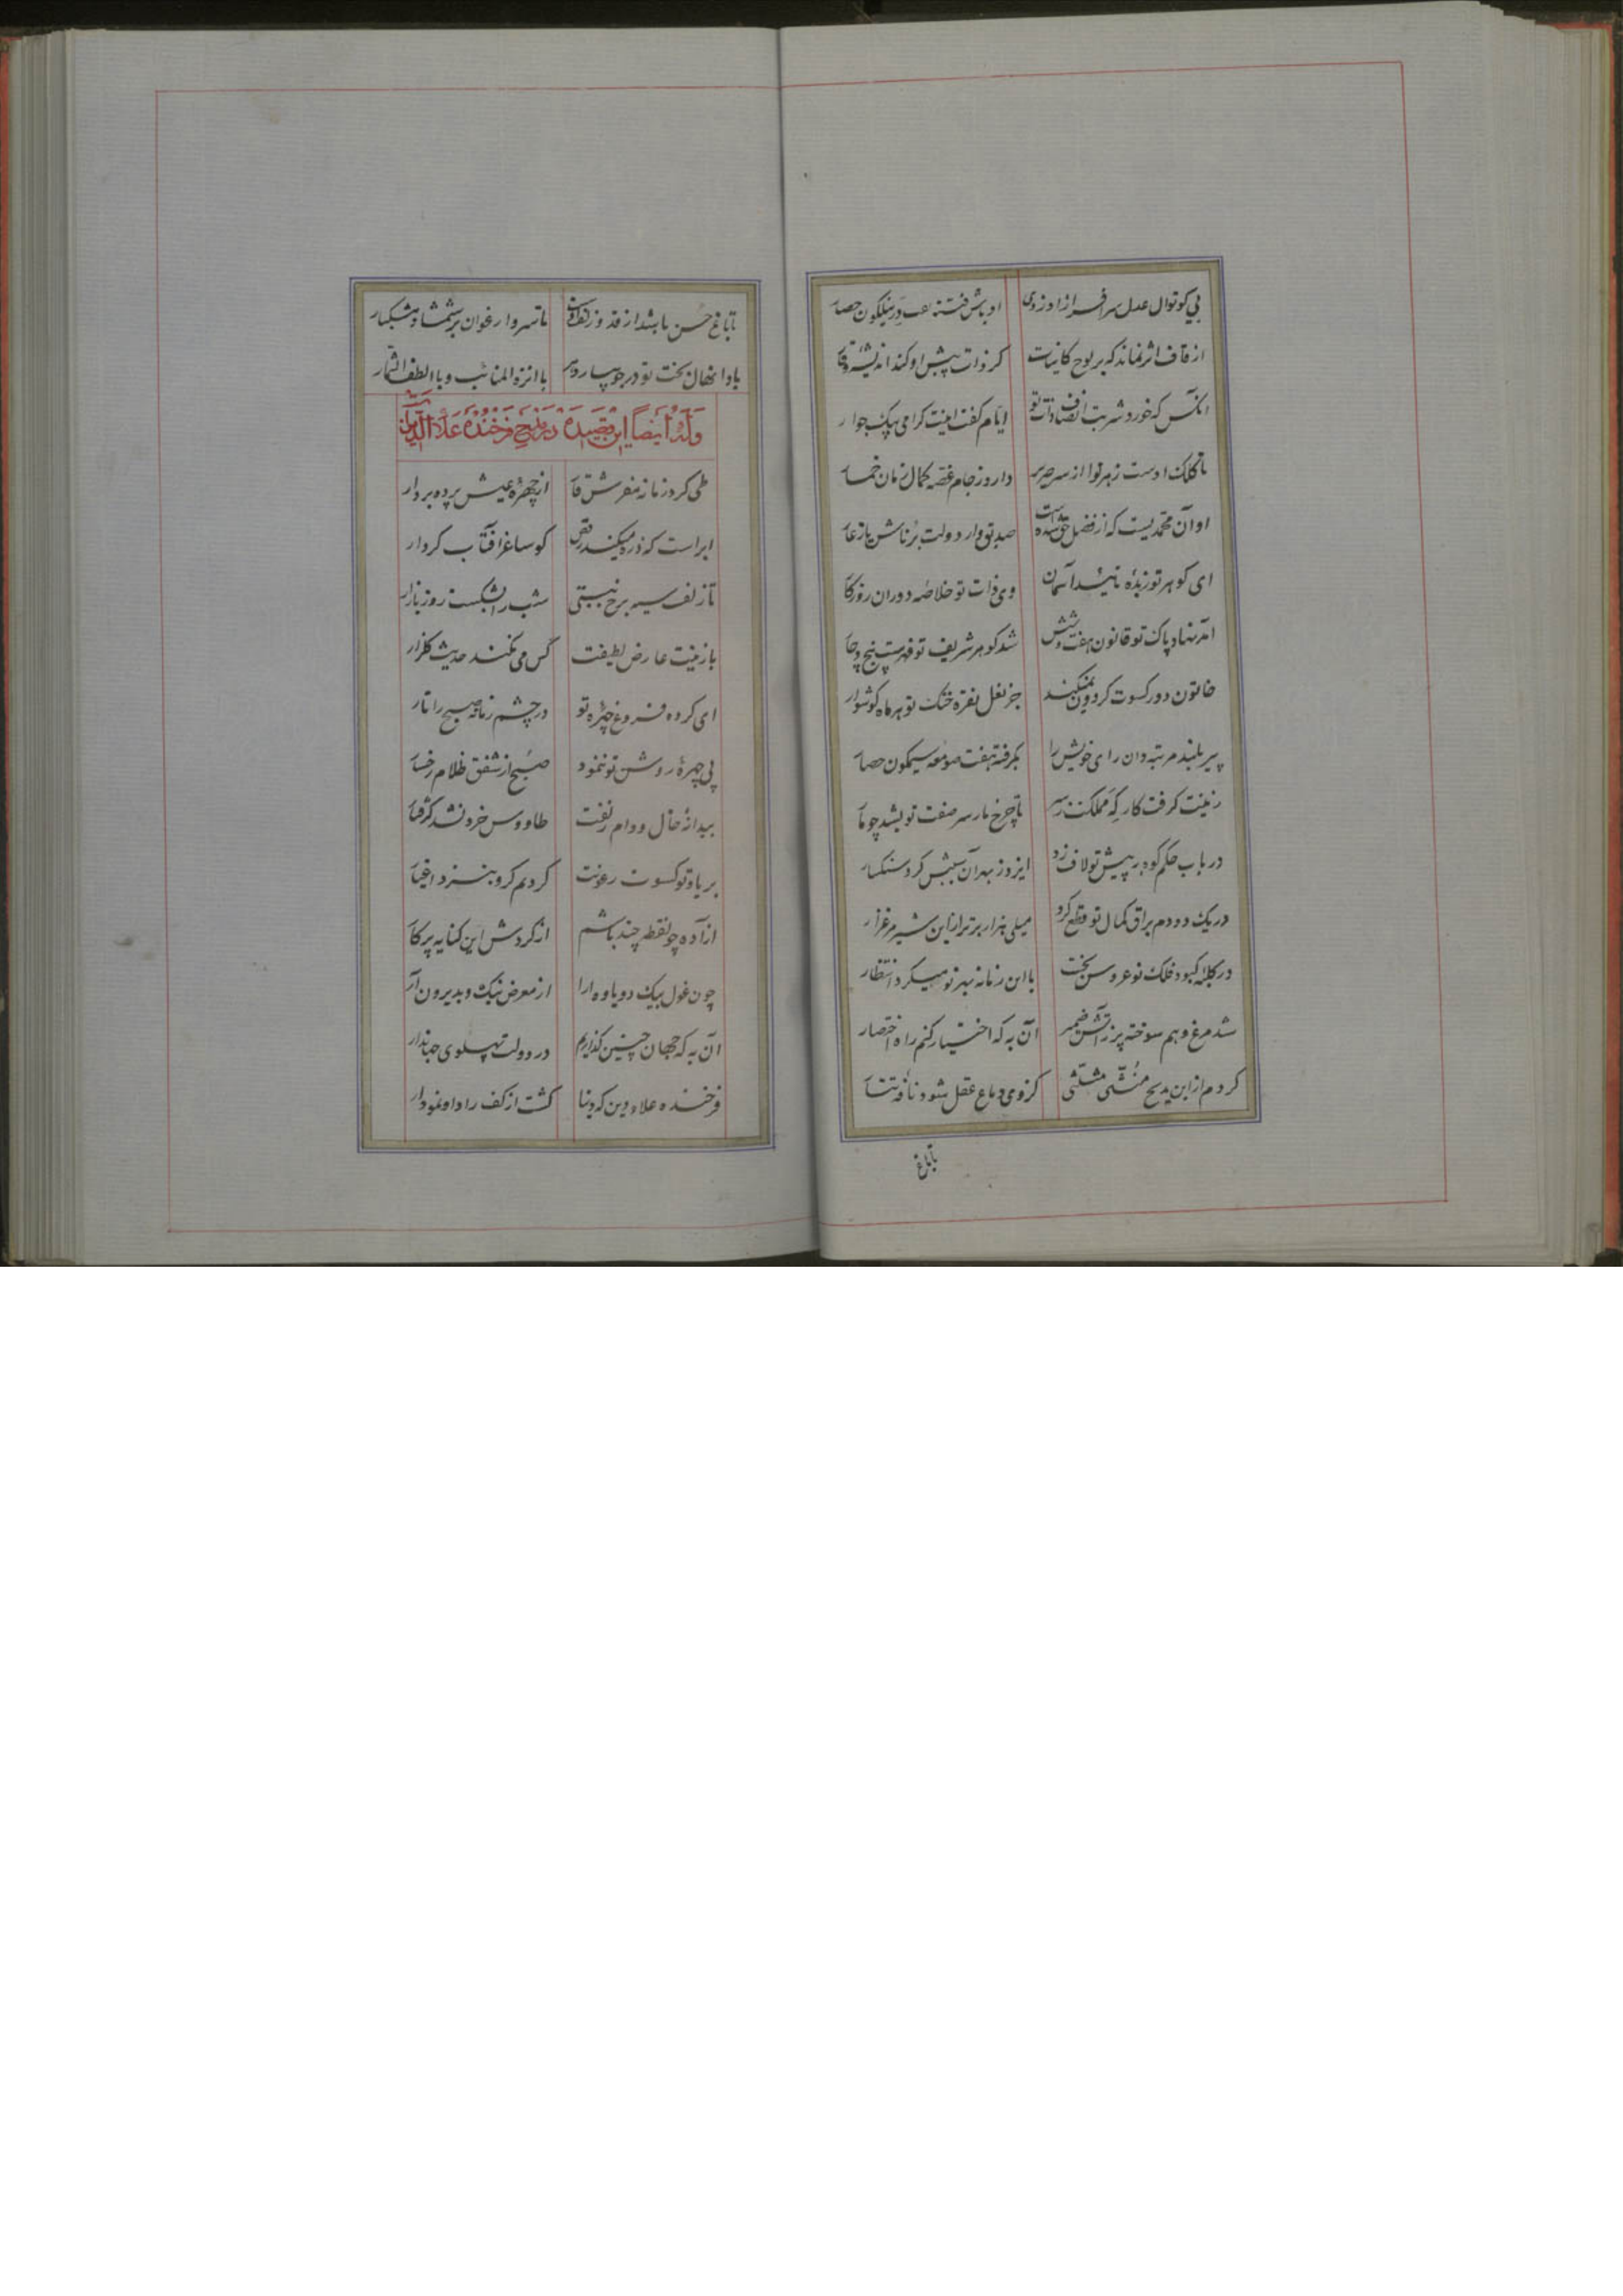 بی کوتوال عدل سرافراز او زدی اوباش فتنه نقب در نیلگون حصار
از قاف اثر نماند که بر لوح کاینات کر ذات پیش او کند اندیشه
آنکس که خورد شربت انصاف ذات تو ایام کفت اینت کرامی جوار
تا کلک اوست زهر نوا از سر صریر دارد ز جام غصه کمال زمان خمار
او آن محمدیست که از فضل حق شده است صدیق وار دولت برناش یار غار
ای کوهر تو زبده تائید آسمان وی ذات تو خلاصه دوران روزکار
آمد نهاد پاک تو قانون هفت و شش شد کوهر شریف تو فهرست پنج و چار
خاتون دور کسوت کردون نمیکند جز نعل نقره خنک تو هر ماه کوشوار
پیر بلند مرتبه دان رای خویش را بکرفته هفت صومعه سیمکون حصار
زینت کرفت کار که مملکت ز سر تا چرخ مار سر صفت تو بشد چو مار
در باب حکم کوه به پیش تو لاف زد ایزد ز بهر آن سببش کرد سنکسار
در یک دو دم براق کمال تو قطع کرد میلی هزار برتر از این شیر مرغزار
در کله کبود فلک نوعروس بخت با این زمانه بهر تو میکرد انتظار
شد مرغ وهم سوخته پر ز آتش ضمیر آن به که اختیار کنم راه اختصار
کردم از این مدیح منقی مثلثی کز وی دماغ عقل شود نافه تتار
تا باغ
تا باغ حسن باشد از قد و زلف و تا سرو ارغوان بر شمشاد مشکبار
بادا نهال بخت تو در جویبار دهر با انزه المنائب و با الطف الثمار
وله ایضا این قصیده در مدح فرخنده علاءالدین
طی کرد زمانه مفرش قار از چهره عیش پرده بردار
ابر است که ذره میکند رقص کو ساغر آفتاب کردار
تا زلف سیه برخ نبستی شب را نشکست روز بازار
با زینت عارض لطیفت کس می نکند حدیث کلزار
ای کرده فروغ چهره تو در چشم زمانه صبح را تار
بی چهره روشن تو ننمود صبح از شفق ظلام رخسار
بی دانه خال و دام زلفت طاووس خرد نشد کرفتار
بر یاد تو کسوت رعونت کردیم کرو بنزد اغیار
آزاده چو نقطه چند باشم از کردش این کنایه پرکار
چون غول بیک دو یاوه ارا از معرض نیک و بد برون آر
آن به که جهان چنین کذاریم در دولت پهلوی جهاندار
فرخنده علاء دین که دنیا کشت از کف راد او نمودار